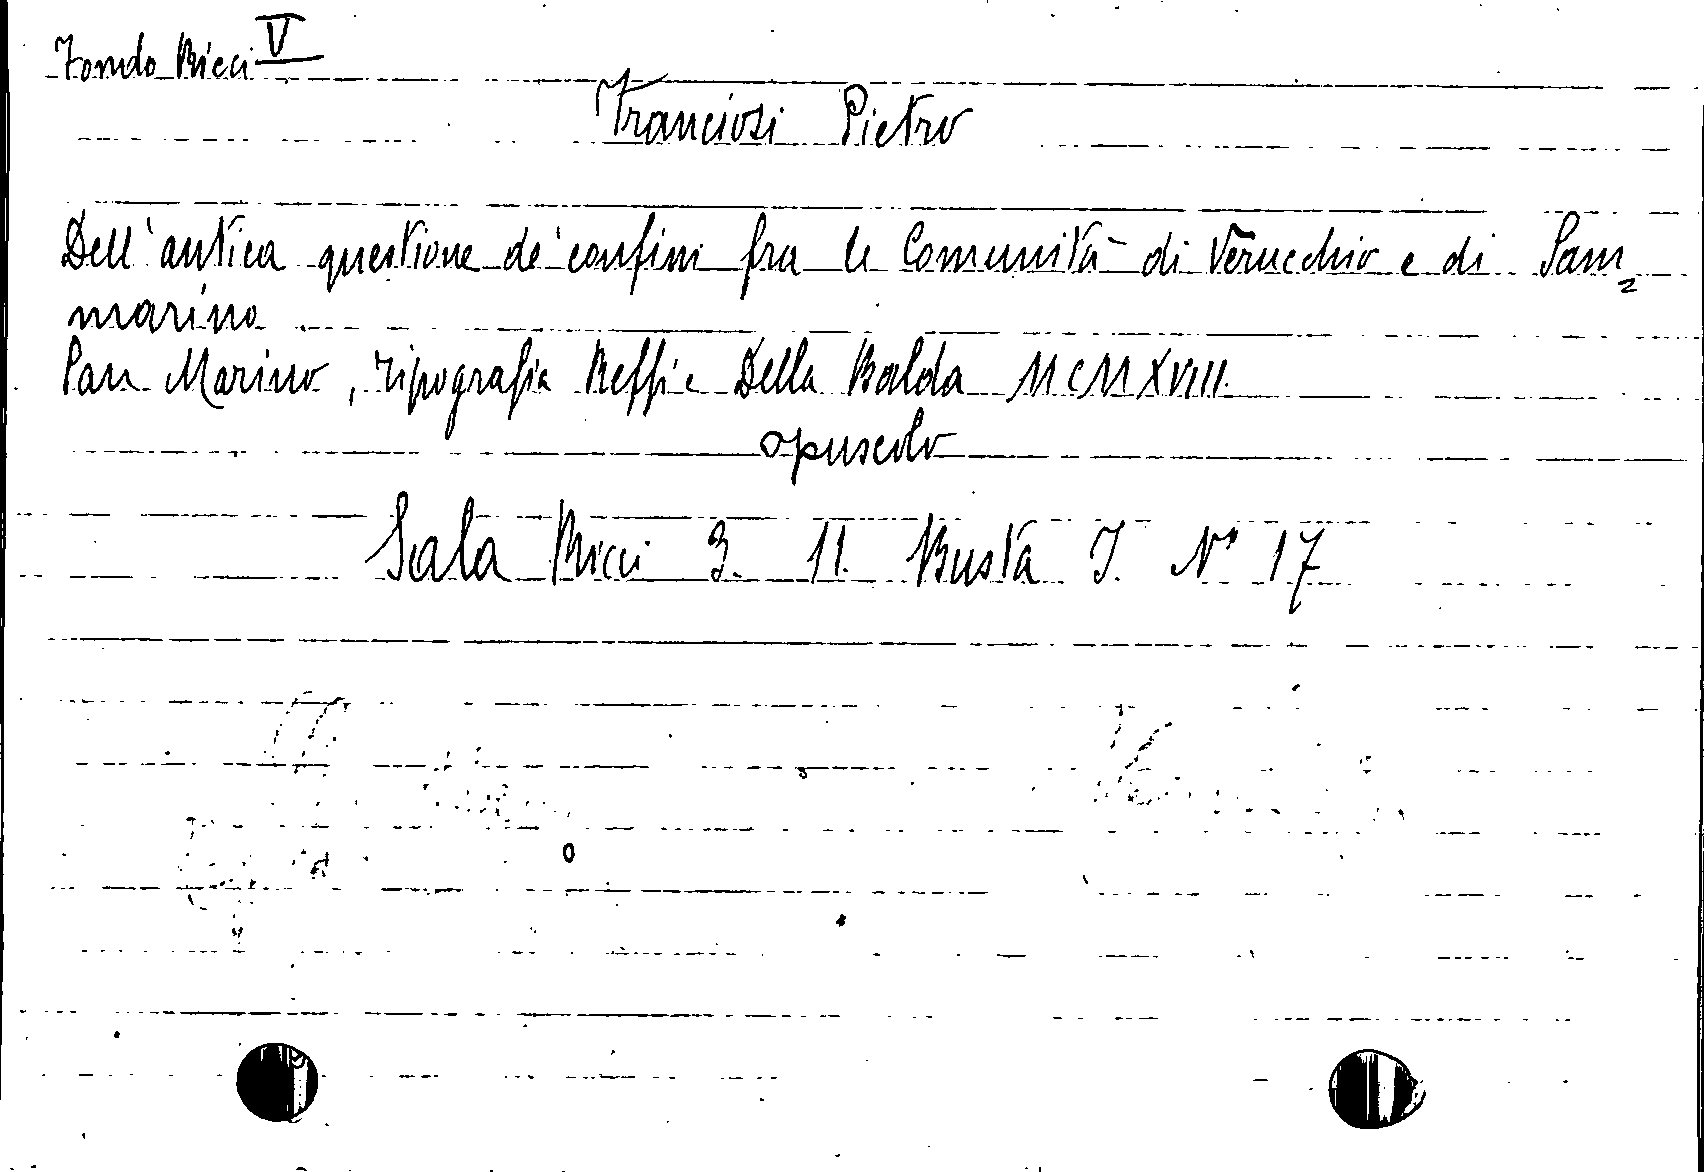 Fondo Ricci V
Franciosi Pietro
Dell'antica questione de' confini fra le Comunità di Verucchio e di Sam=
marino
San Marino, Tipografia Reffi e Della Balda MCMXVIII.
opuscolo
Sala Ricci 3. 11. Busta I. N° 17